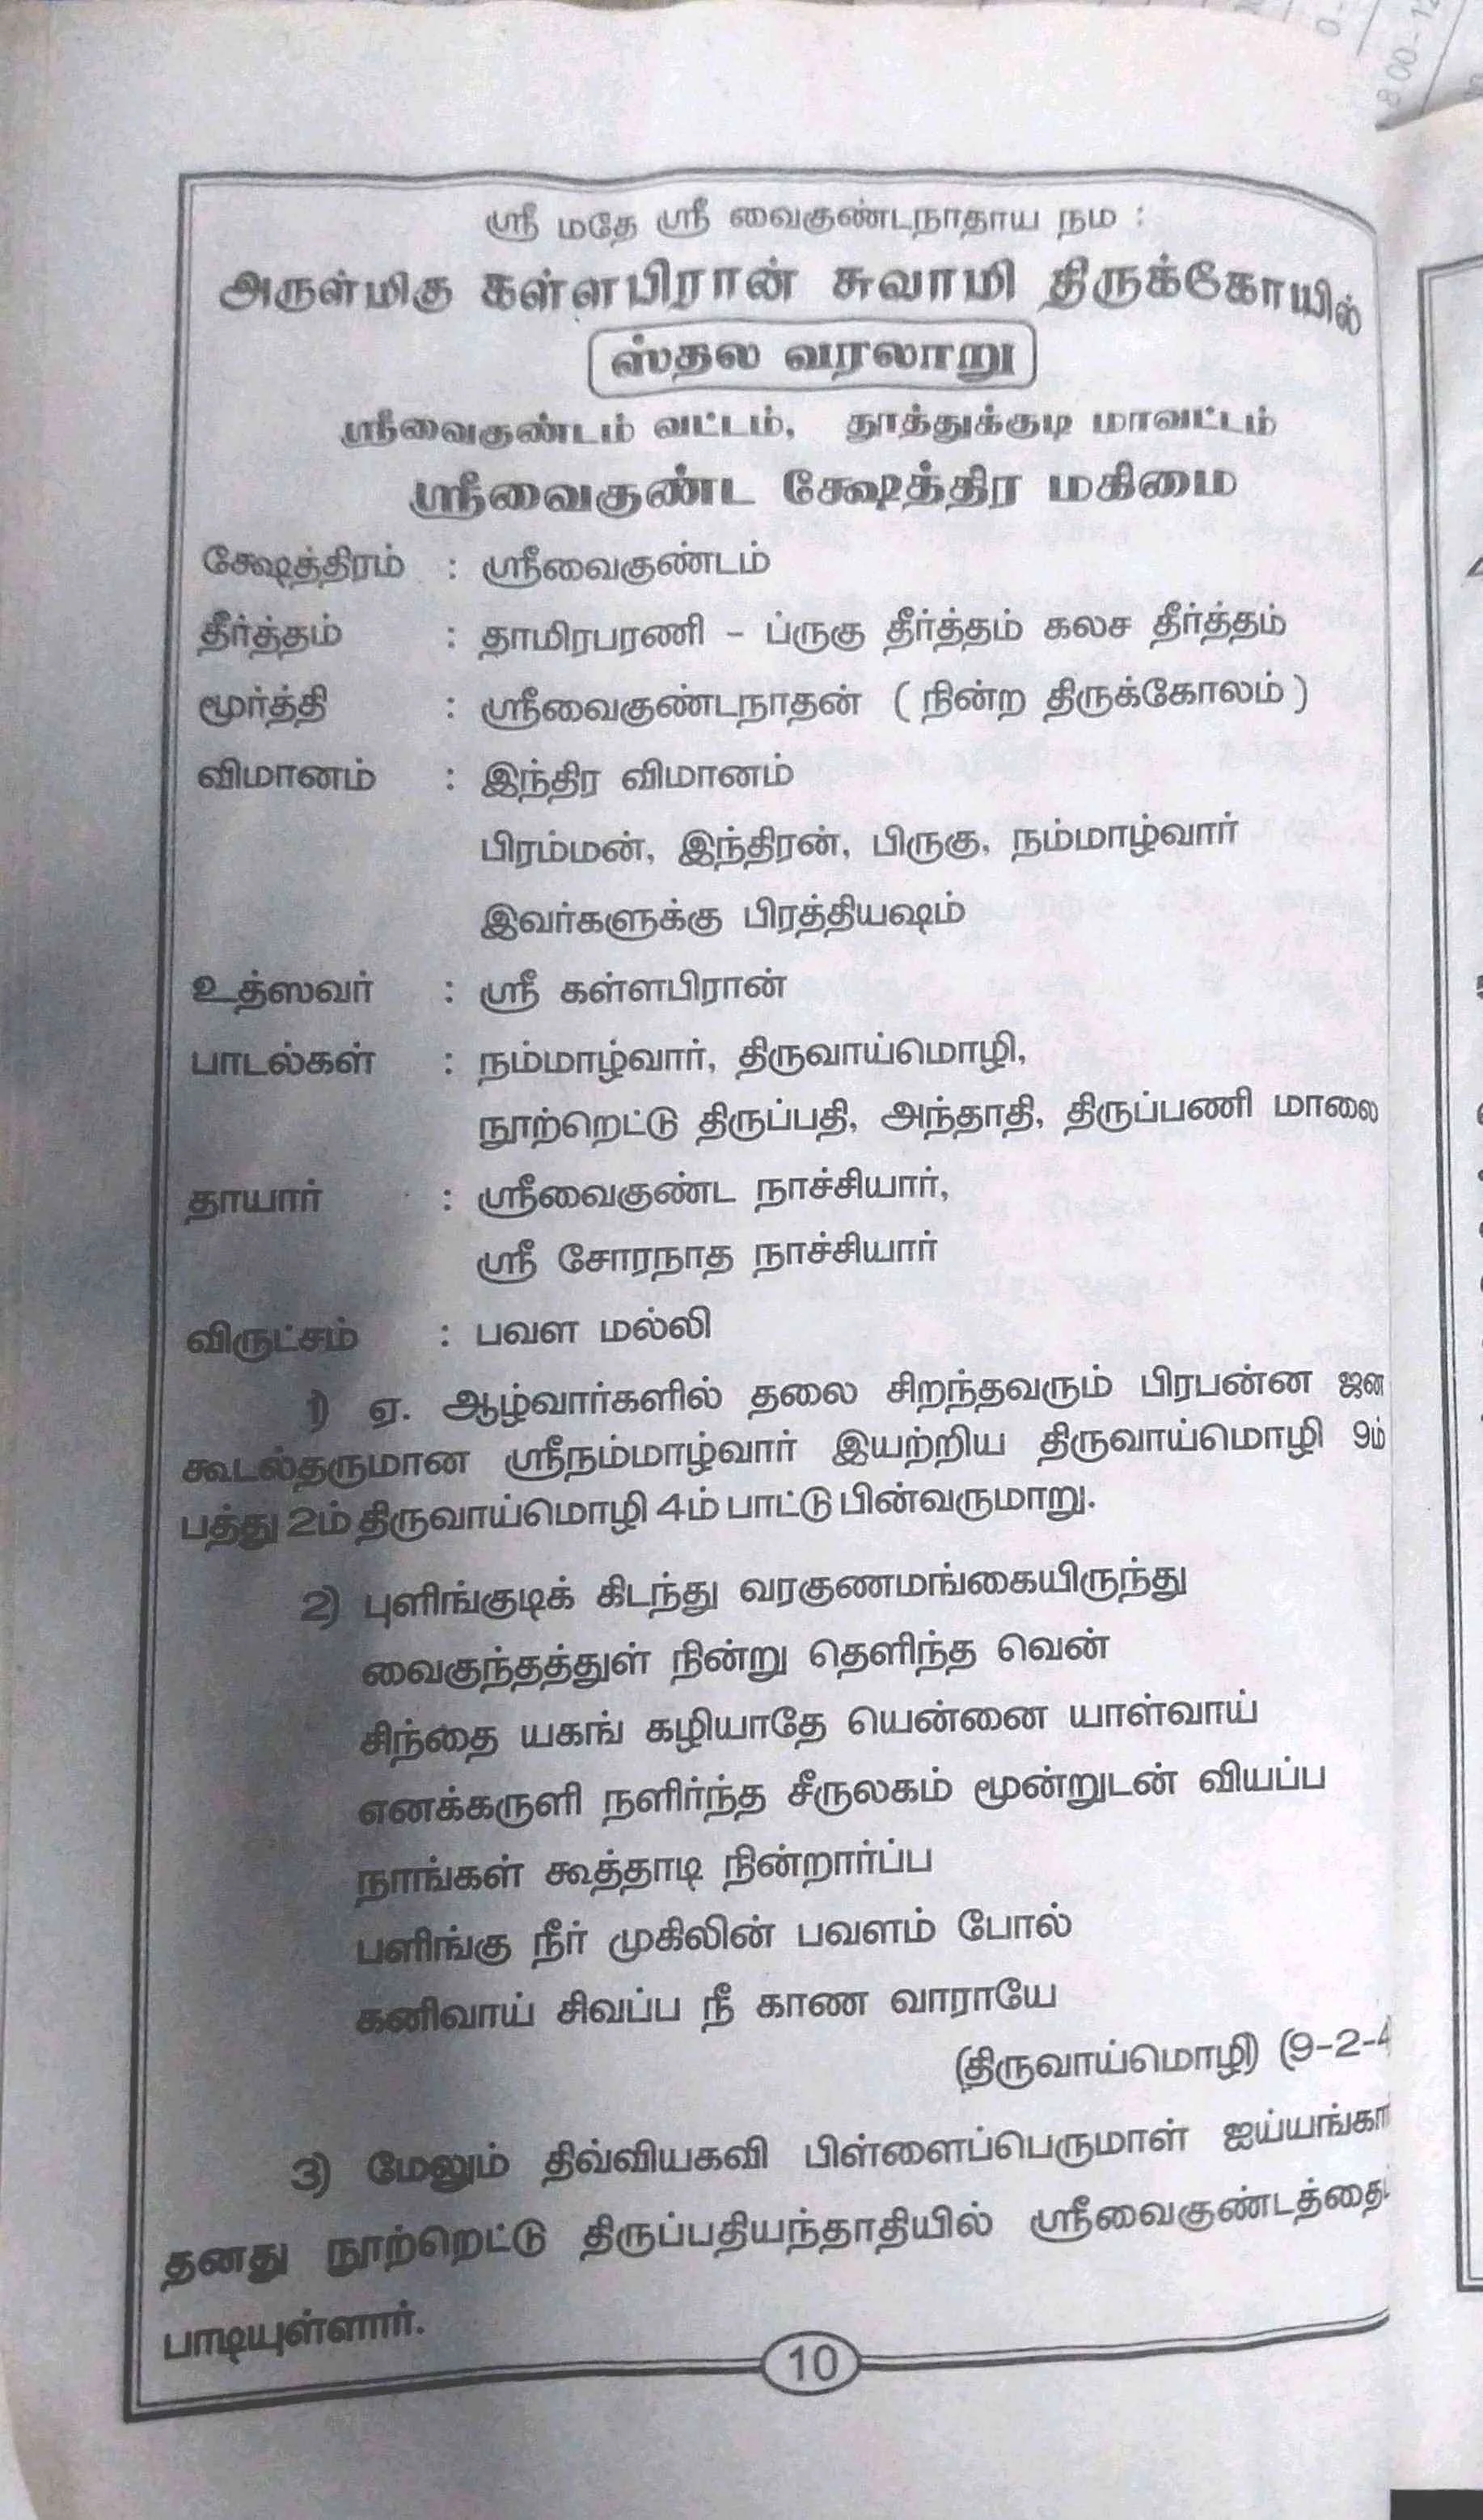 ஸ்ரீ மதே ஸ்ரீ வைகுண்டநாதாய நம :
அருள்மிகு கள்ளபிரான் சுவாமி திருக்கோயில்
ஸ்தல வரலாறு
ஸ்ரீவைகுண்டம் வட்டம், தூத்துக்குடி மாவட்டம்
ஸ்ரீவைகுண்ட க்ஷேத்திர மகிமை
க்ஷேத்திரம் : ஸ்ரீவைகுண்டம்
தீர்த்தம் : தாமிரபரணி – ப்ருகு தீர்த்தம் கலச தீர்த்தம்
மூர்த்தி : ஸ்ரீவைகுண்டநாதன் ( நின்ற திருக்கோலம் )
விமானம் : இந்திர விமானம்
பிரம்மன், இந்திரன், பிருகு, நம்மாழ்வார்
இவர்களுக்கு பிரத்தியஷம்
உத்ஸவர் : ஸ்ரீ கள்ளபிரான்
பாடல்கள் : நம்மாழ்வார், திருவாய்மொழி,
நூற்றெட்டு திருப்பதி, அந்தாதி, திருப்பணி மாலை
தாயார் : ஸ்ரீவைகுண்ட நாச்சியார்,
ஸ்ரீ சோரநாத நாச்சியார்
விருட்சம் : பவள மல்லி
1) ஏ. ஆழ்வார்களில் தலை சிறந்தவரும் பிரபன்ன ஜன
கூடல்தருமான ஸ்ரீநம்மாழ்வார் இயற்றிய திருவாய்மொழி 9ம்
பத்து 2ம் திருவாய்மொழி 4ம் பாட்டு பின்வருமாறு.
2) புளிங்குடிக் கிடந்து வரகுணமங்கையிருந்து
வைகுந்தத்துள் நின்று தெளிந்த வென்
சிந்தை யகங் கழியாதே யென்னை யாள்வாய்
எனக்கருளி நளிர்ந்த சீருலகம் மூன்றுடன் வியப்ப
நாங்கள் கூத்தாடி நின்றார்ப்ப
பளிங்கு நீர் முகிலின் பவளம் போல்
கனிவாய் சிவப்ப நீ காண வாராயே
(திருவாய்மொழி) (9-2-4
3) மேலும் திவ்வியகவி பிள்ளைப்பெருமாள் ஐய்யங்கா
தனது நூற்றெட்டு திருப்பதியந்தாதியில் ஸ்ரீவைகுண்டத்தை
பாடியுள்ளார்.
10